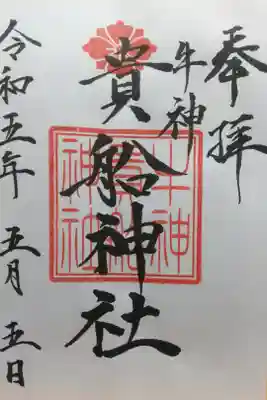 奉拝
牛神
貴船神社
令和五年 五月 五日